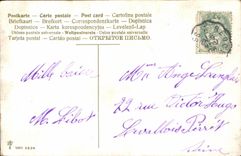 Postkarte - Carte postale - Post card - Cartolina postale
Briefkaart - Brefkort - Correspondenzkarte - Dopisnice
Dopisnica - Karta korespondencyjna - Levelező-Lap
Union postale universelle - Weltpostverein - Unione postale universale
Tarjeta postal - Cartão postal - ОТКРЫТОЕ ПИСЬМО
Mille
M. Libert
Mme Ange
22 rue Victor Hugo
Levallois Perret
Seine